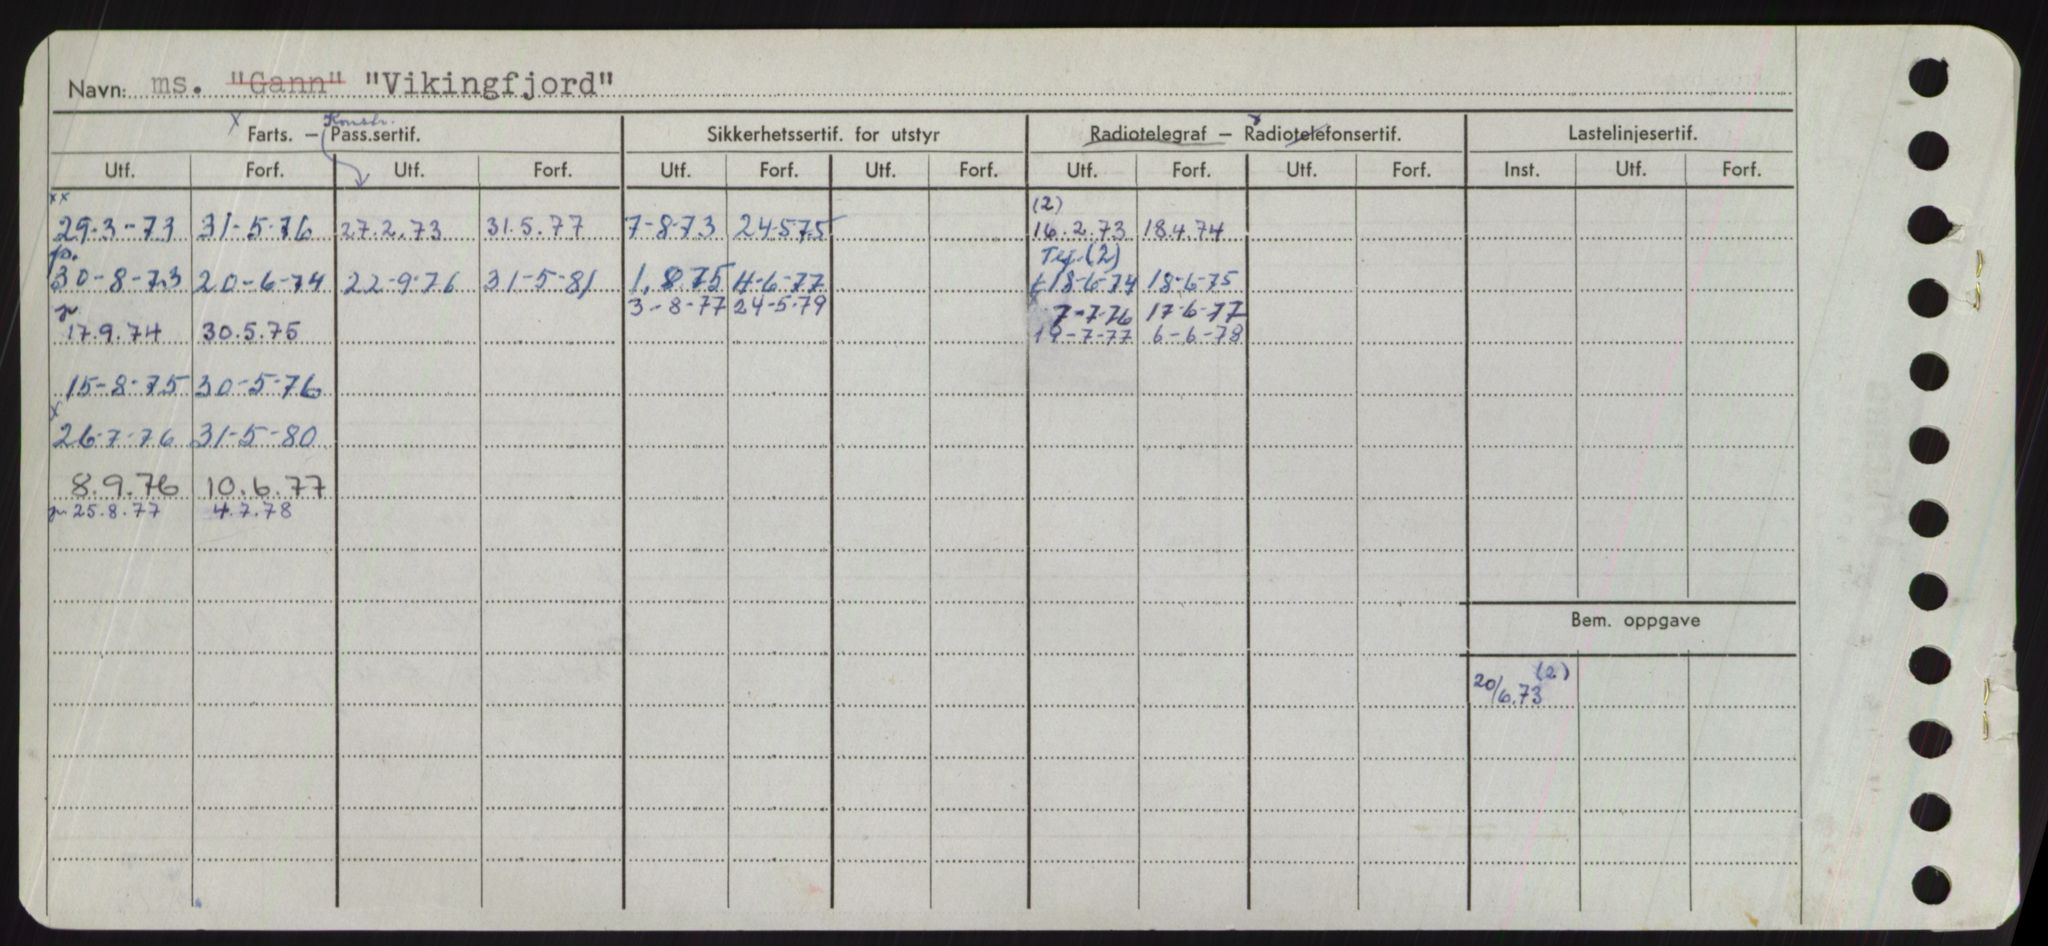 Navn: ms. "Gann" "Vikingfjord"
x Farts. – Konstr. Pass.sertif. Sikkerhetssertif. for utstyr Radiotelegraf – Radiotelefonsertif. Lastelinjesertif.
Utf. Forf. Utf. Forf. Utf. Forf. Utf. Forf. Utf. Forf. Utf. Forf. Inst. Utf. Forf.
xx (2)
29-3-73 31-5-76 27.2.73 31.5.77 7-8-73 24-5-75 16.2.73 18.4.74
fo. Tg.(2)
30-8-73 20-6-74 22-9-76 31-5-81 1.8.75 4-6-77 18-6-74 18-6-75
3-8-77 24-5-79 7-7-76 17-6-77
17.9.74 30.5.75 19-7-77 6-6-78
15-8-75 30-5-76
x
26-7-76 31-5-80
8.9.76 10.6.77
25.8.77 4.7.78
Bem. oppgave
20/6.73 (2)